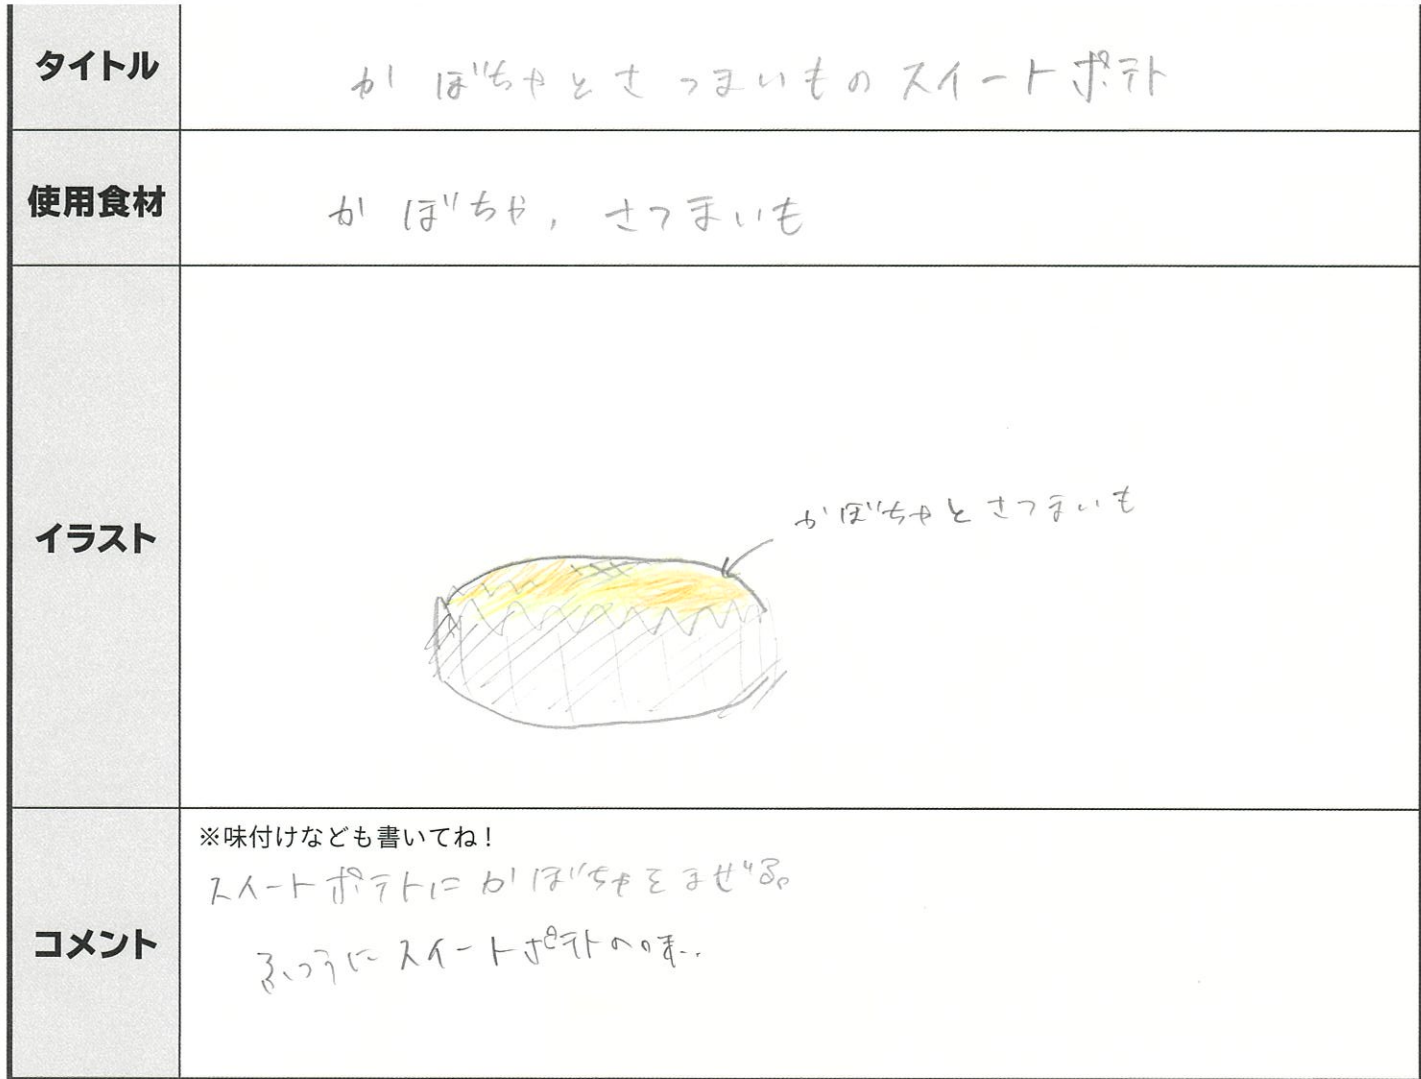 タイトル
かぼちゃとさつまいものスイートポテト
使用食材
かぼちゃ,さつまいも
イラスト
かぼちゃとさつまいも
コメント
※味付けなども書いてね!
スイートポテトにかぼちゃをまぜる。
ふつうにスイートポテトの味..